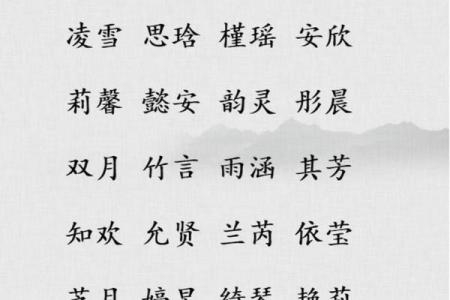 凌雪 思琀 槿瑶 安欣
莉馨 懿安 韵灵 彤晨
双月 竹言 雨涵 其芳
知欢 允贤 兰芮 依莹
绮琴 艳莉